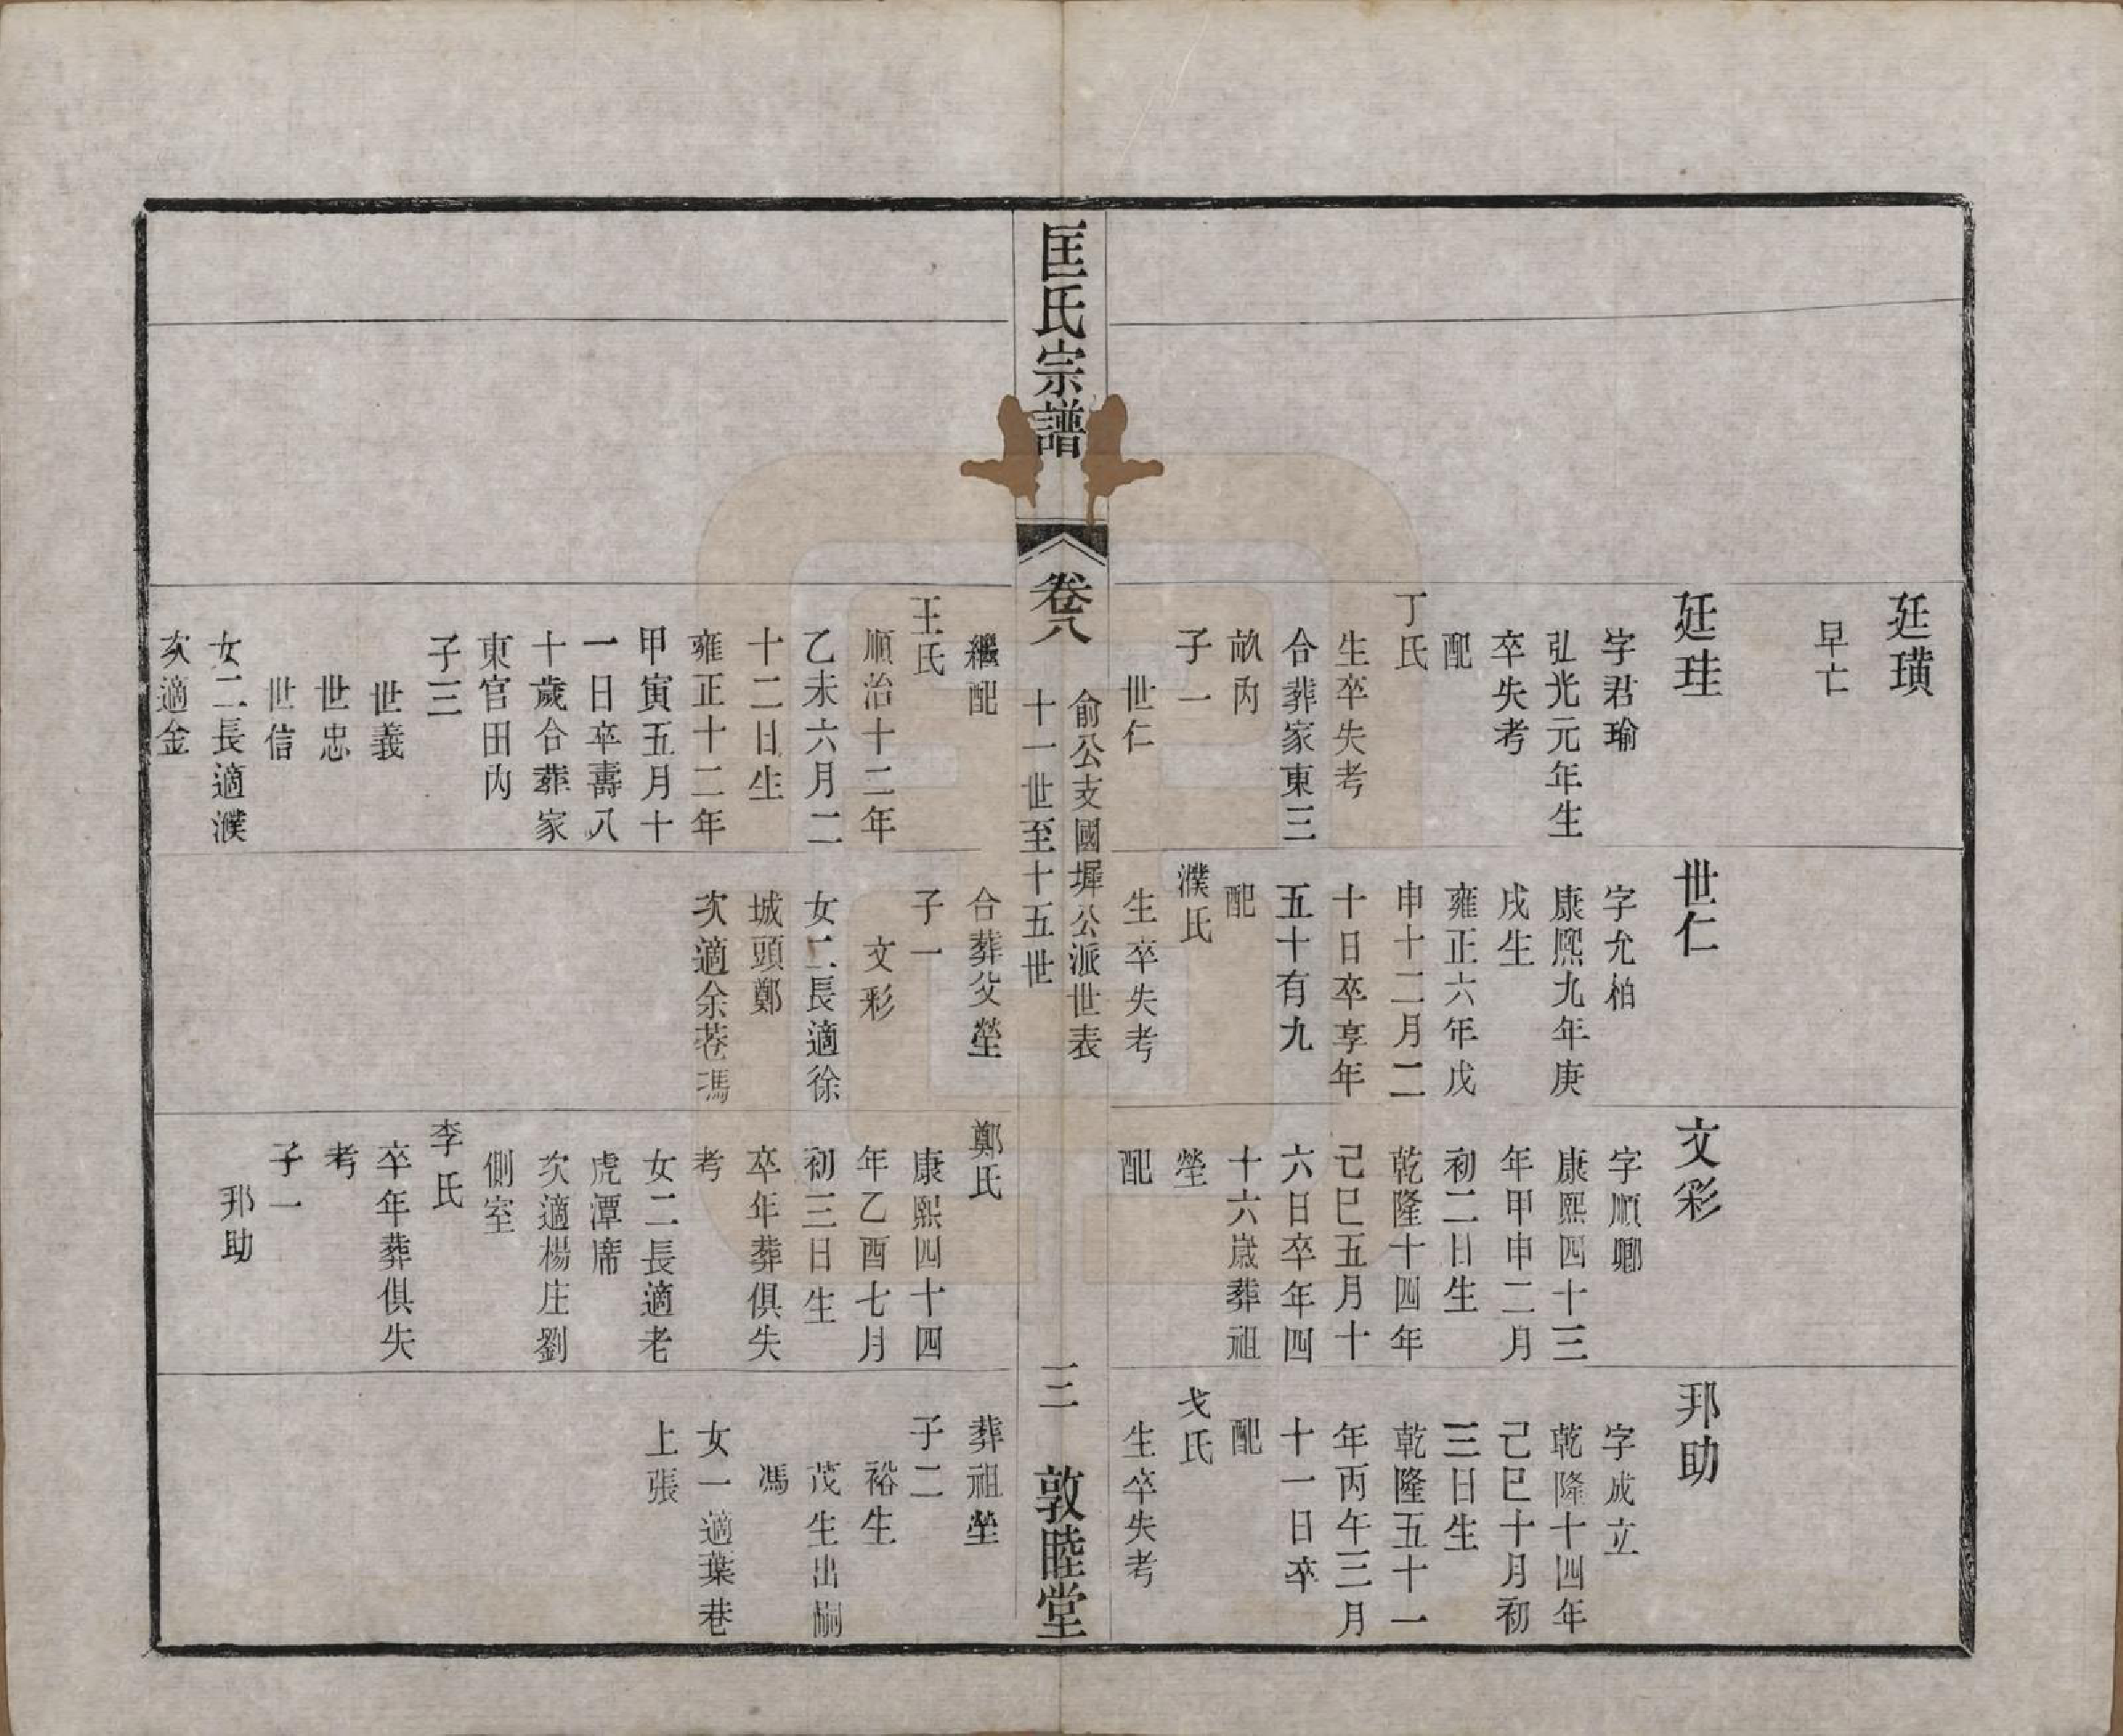 廷璜
早亡
廷珪
字君瑜
弘光元年生
卒失考
配
丁氏
生卒失考
合葬家東三
畝內
子一
世仁
世仁
字允柏
康熙九年庚
戌生
雍正六年戊
申十二月二
十日卒享年
五十有九
配
濮氏
生卒失考
文彩
字順卿
康熙四十三
年甲申二月
初二日生
乾隆十四年
己巳五月十
六日卒年四
十六歲葬祖
塋
配
邦助
字成立
乾隆十四年
己巳十月初
三日生
乾隆五十一
年丙午三月
十一日卒
配
戈氏
生卒失考
匡氏宗譜
卷八
俞公支國墀公派世表
十一世至十五世
三
敦睦堂
繼配
王氏
順治十二年
乙未六月二
十二日生
雍正十二年
甲寅五月十
一日卒壽八
十歲合葬家
東官田內
子三
世義
世忠
世信
女二長適濮
次適金
合葬父塋
子一
文彩
女二長適徐
城頭鄭
次適余巷馮
鄭氏
康熙四十四
年乙酉七月
初三日生
卒年葬俱失
考
女二長適老
虎潭席
次適楊庄劉
側室
李氏
卒年葬俱失
考
子一
邦助
葬祖塋
子二
裕生
茂生出嗣
馮
女一適葉巷
上張